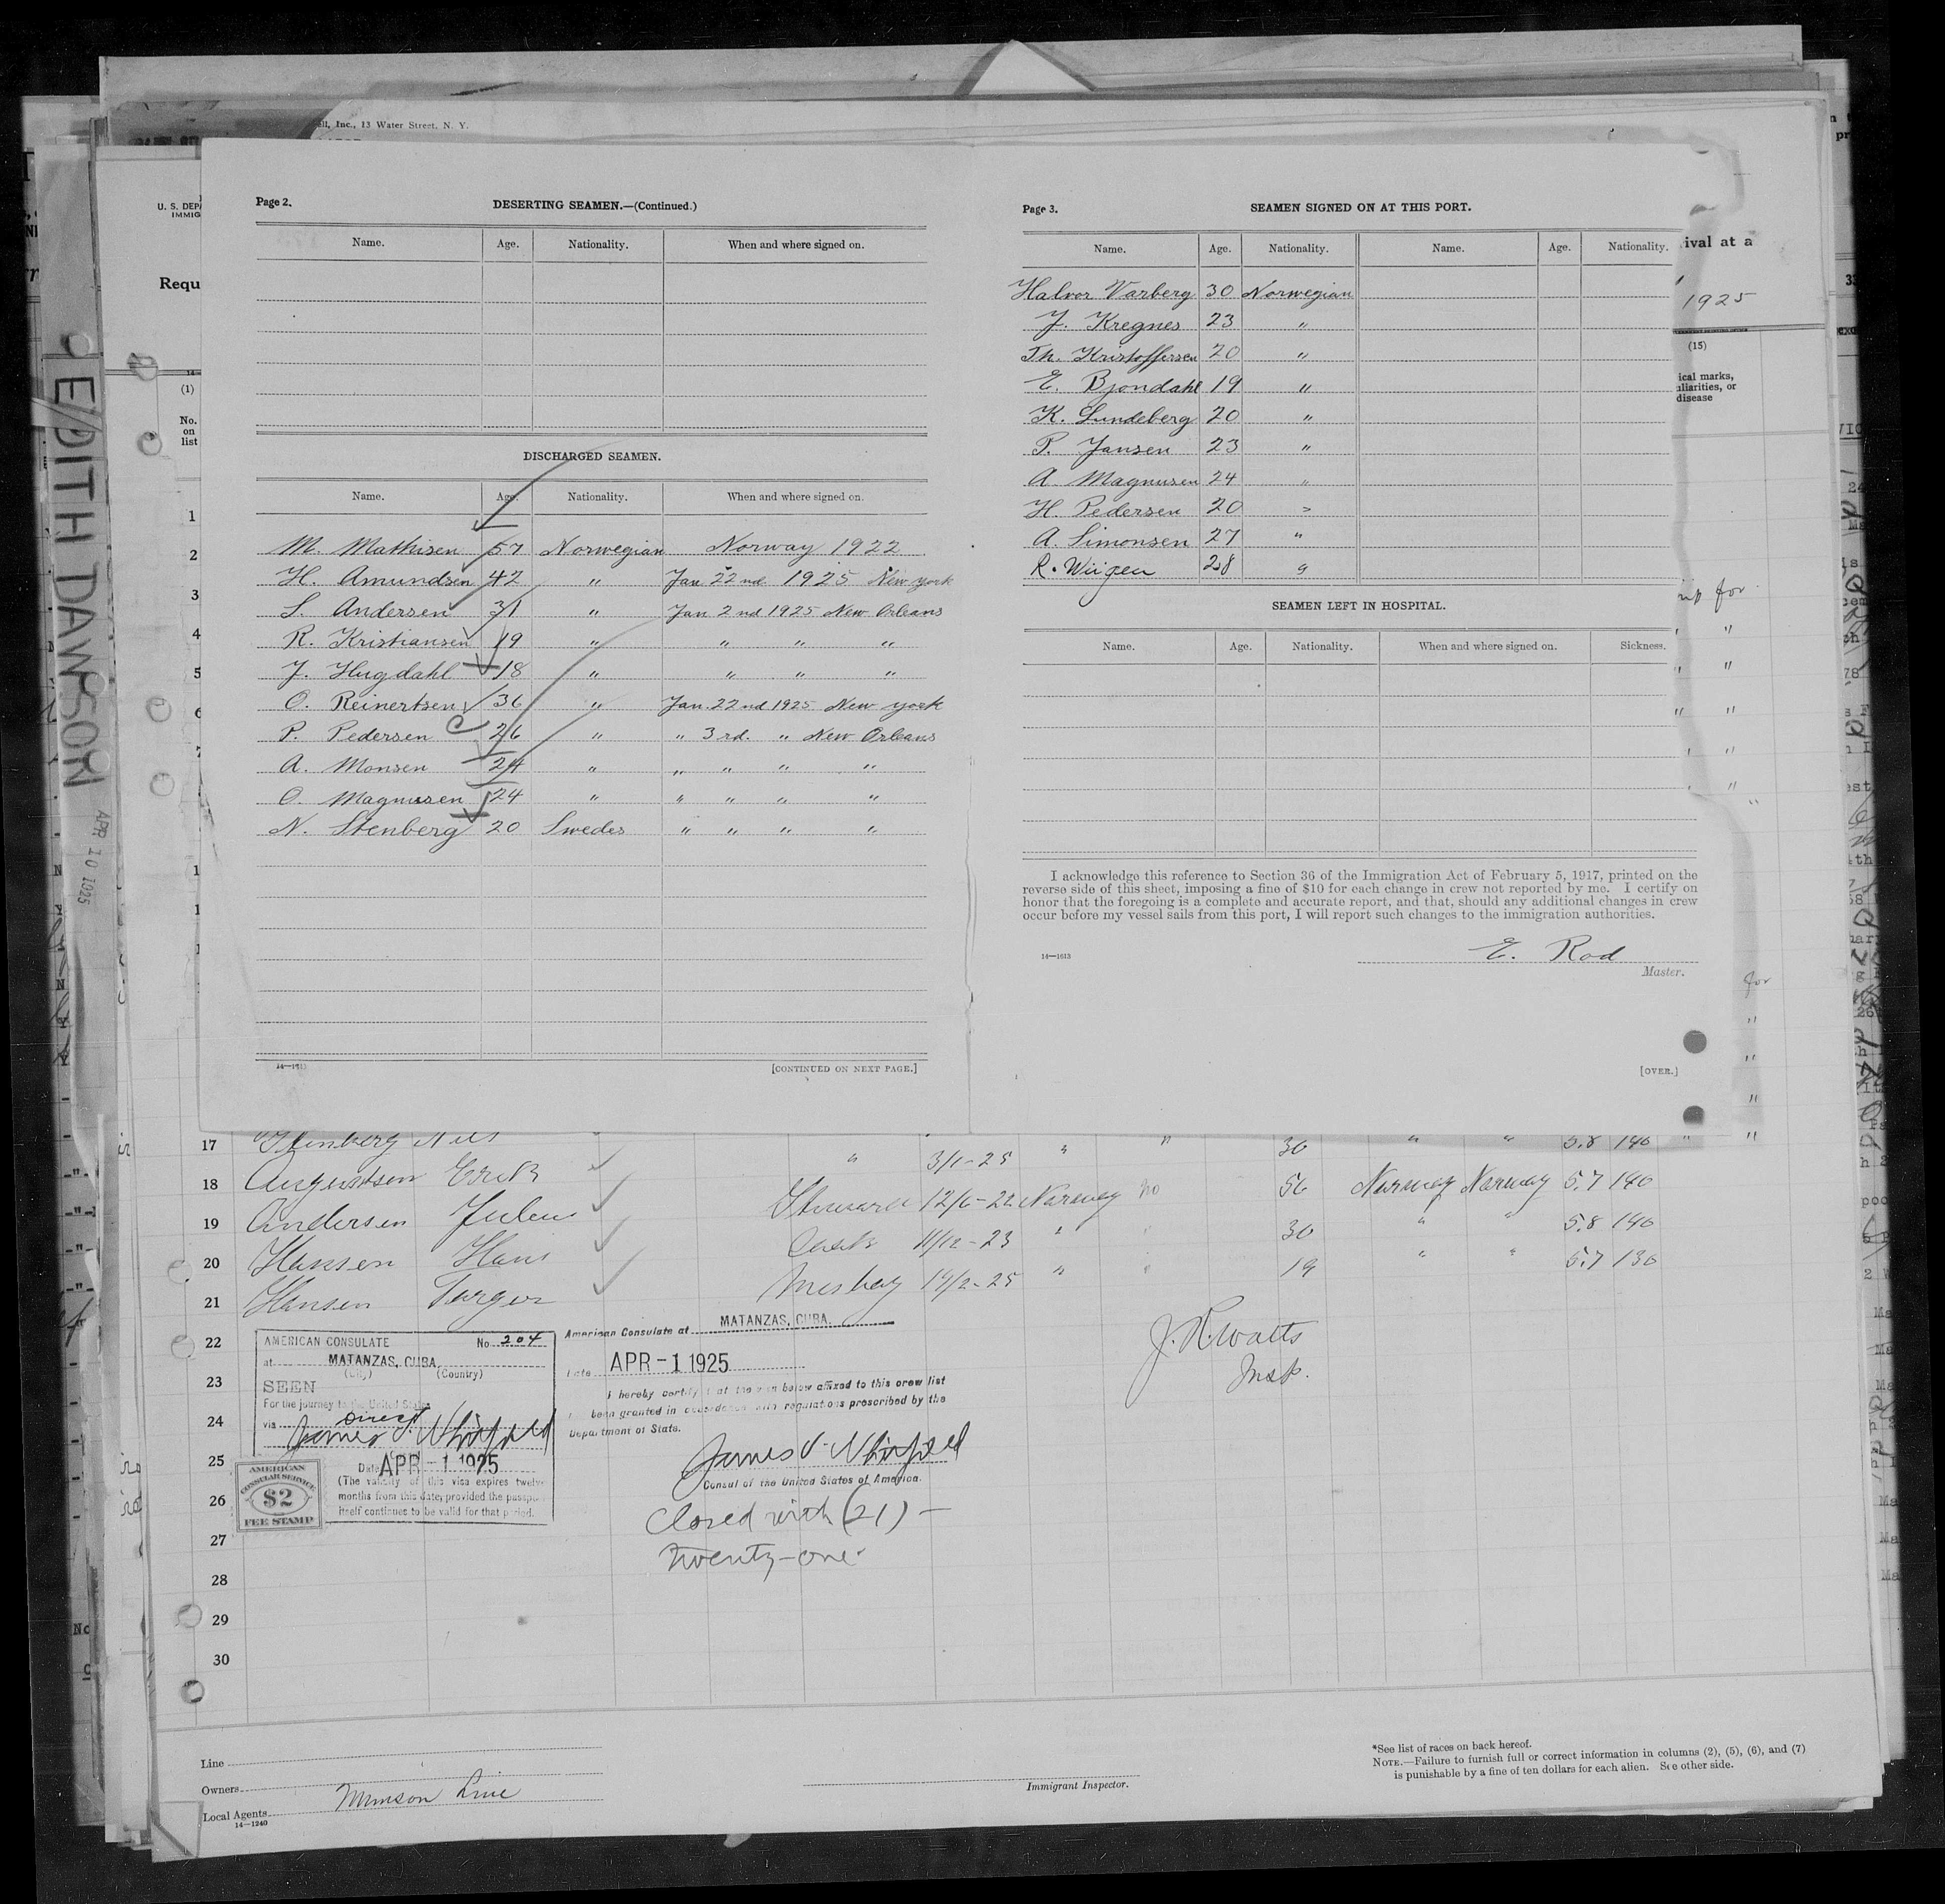 ell, Inc., 13 Water Street, N. Y.
U. S. DEP
IMMIG
Requ
ival at a
1925
(1)
No.
on
list
(15)
ical marks,
uliarities, or
disease
EDITH DAWSON
APR 10 1925
Page 2.
DESERTING SEAMEN.—(Continued.)
Name. Age. Nationality. When and where signed on.
DISCHARGED SEAMEN.
Name. Age. Nationality. When and where signed on.
M. Mathisen 57 Norwegian Norway 1922
H. Amundsen 42 " Jan 22nd 1925 New york
S. Andersen 31 " Jan 2nd 1925 New Orleans
R. Kristiansen 19 " " " "
J. Hugdahl 18 " " " "
O. Reinertsen 36 " Jan. 22nd 1925 New york
P. Pedersen 26 " " 3rd. " New Orleans
A. Monsen 24 " " " " "
O. Magnussen 24 " " " " "
N. Stenberg 20 Swedes " " " "
[CONTINUED ON NEXT PAGE.]
Page 3.
SEAMEN SIGNED ON AT THIS PORT.
Name. Age. Nationality. Name. Age. Nationality.
Halvor Varberg 30 Norwegian
J. Kregnes 23 "
Th. Kristoffersen 20 "
E. Bjondahl 19 "
K. Lundeberg 20 "
P. Jansen 23 "
A. Magnusen 24 "
H. Pedersen 20 "
A. Simonsen 27 "
R. Wiigen 28 "
SEAMEN LEFT IN HOSPITAL.
Name. Age. Nationality. When and where signed on. Sickness.
I acknowledge this reference to Section 36 of the Immigration Act of February 5, 1917, printed on the
reverse side of this sheet, imposing a fine of $10 for each change in crew not reported by me. I certify on
honor that the foregoing is a complete and accurate report, and that, should any additional changes in crew
occur before my vessel sails from this port, I will report such changes to the immigration authorities.
E. Rod
14—1613
Master.
[OVER.]
1
2
3
4
5
6
7
17 Stenberg Nils " 3/1-25 " " 30 " " 5.8 140
18 Augustsen Erik Steward 12/6-22 Norway no 56 Norway Norway 5.7 140
19 Andersen Julius Cook 11/12-23 " " 30 " " 5.8 140
20 Hansen Hans Messboy 14/2-25 " " 19 " " 5.7 130
21 Hansen Torger
22
23
24
25
26
27
28
29
30
AMERICAN CONSULATE No. 204
at MATANZAS, CUBA.
(City) (Country)
SEEN
For the journey to the United States
via direct
Date APR - 1 1925
(The validity of this visa expires twelve
months from this date, provided the passp
itself continues to be valid for that period.
AMERICAN
CONSULAR SERVICE
$2
FEE STAMP
American Consulate at MATANZAS, CUBA.
Date APR - 1 1925
I hereby certify that the visa below affixed to this crew list
been granted in accordance with regulations prescribed by the
Department of State.
Consul of the United States of America.
Closed with (21) —
Twenty-one.
J. R. Watts
Insp.
Line
Owners
Local Agents Munson Line
14—1240
Immigrant Inspector.
*See list of races on back hereof.
NOTE.—Failure to furnish full or correct information in columns (2), (5), (6), and (7)
is punishable by a fine of ten dollars for each alien. See other side.